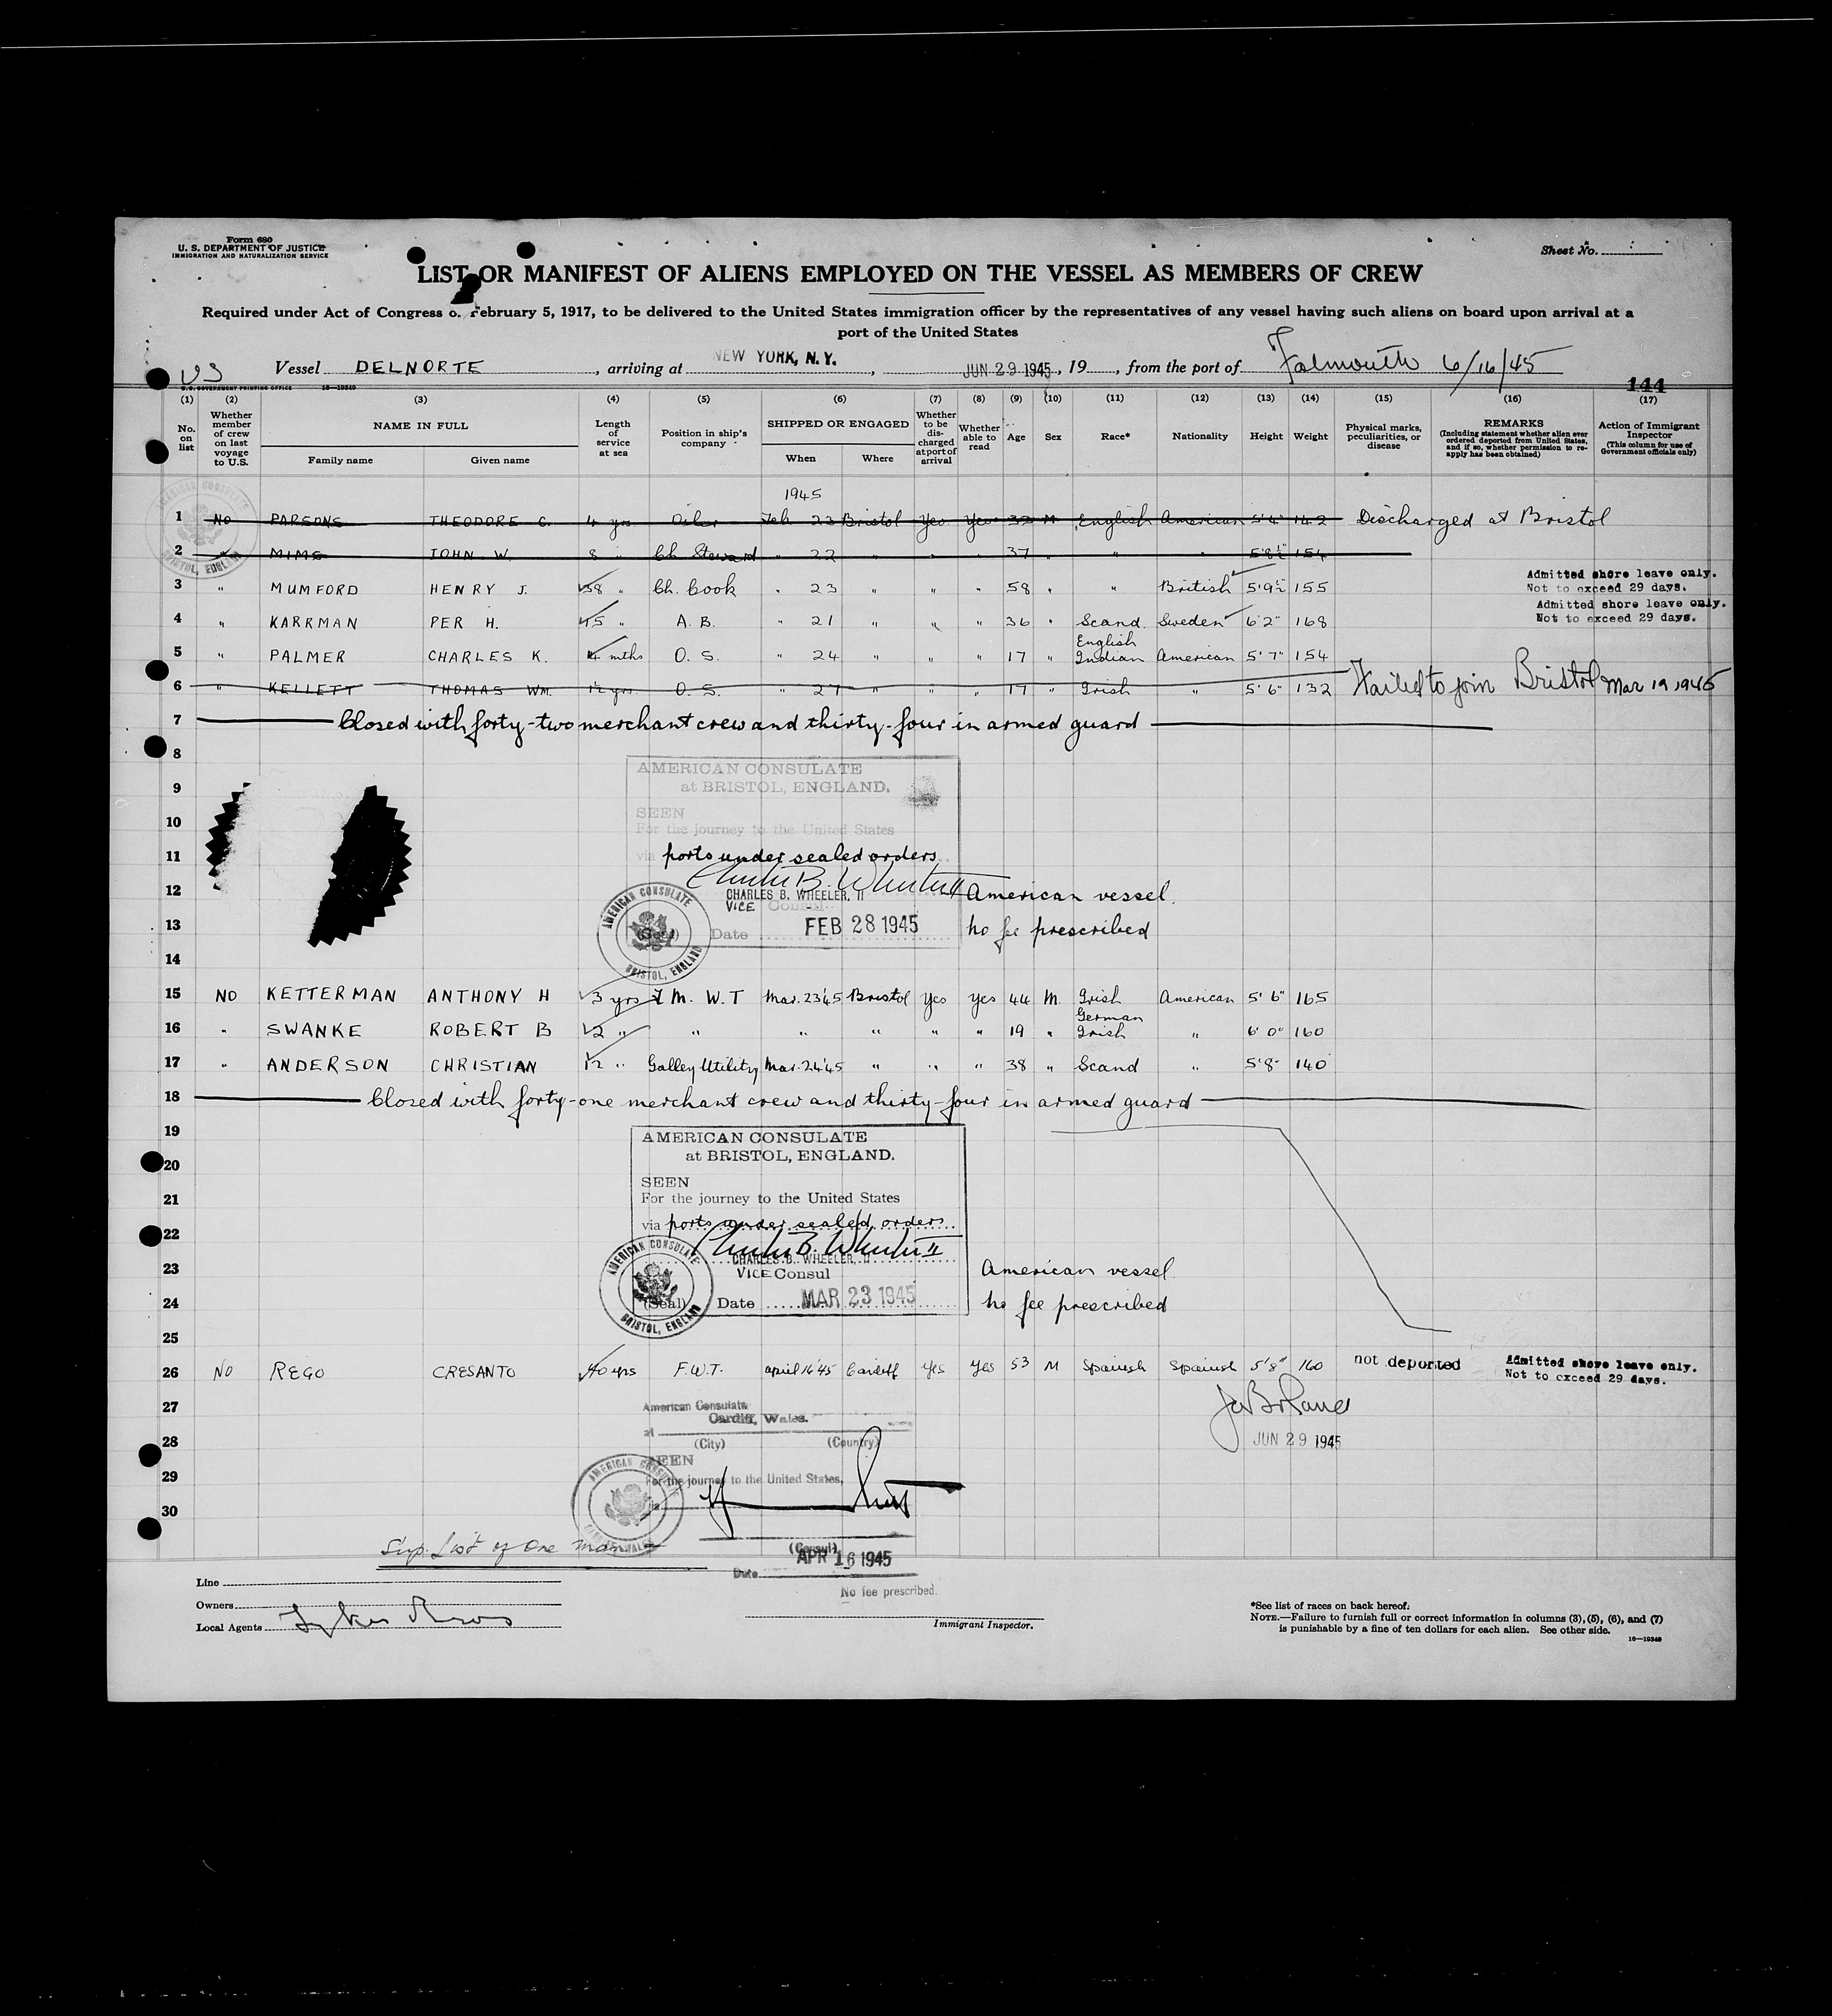 Form 680
U. S. DEPARTMENT OF JUSTICE
IMMIGRATION AND NATURALIZATION SERVICE
Sheet No.
LIST OR MANIFEST OF ALIENS EMPLOYED ON THE VESSEL AS MEMBERS OF CREW
Required under Act of Congress of February 5, 1917, to be delivered to the United States immigration officer by the representatives of any vessel having such aliens on board upon arrival at a
port of the United States
US Vessel DELNORTE, arriving at NEW YORK, N. Y., JUN 29 1945, 19, from the port of Falmouth 6/16/45
U.S. GOVERNMENT PRINTING OFFICE 16-19349
144
(1) (2) (3) (4) (5) (6) (7) (8) (9) (10) (11) (12) (13) (14) (15) (16) (17)
No. on list
Whether member of crew on last voyage to U.S.
NAME IN FULL
Family name Given name
Length of service at sea
Position in ship's company
SHIPPED OR ENGAGED
When Where
Whether to be discharged at port of arrival
Whether able to read
Age
Sex
Race*
Nationality
Height
Weight
Physical marks, peculiarities, or disease
REMARKS
(Including statement whether alien ever ordered deported from United States, and if so, whether permission to reapply has been obtained)
Action of Immigrant Inspector
(This column for use of Government officials only)
1945
1 NO PARSONS THEODORE C. 4 yrs Oiler Feb. 23 Bristol Yes Yes 32 M English American 5'4" 142 Discharged at Bristol
2 " MIMS JOHN W. 8 " Ch. Steward " 22 " " " 37 " " " 5'8½" 154
3 " MUMFORD HENRY J. 38 " Ch. Cook " 23 " " " 58 " " British 5'9½" 155 Admitted shore leave only. Not to exceed 29 days.
4 " KARRMAN PER H. 15 " A. B. " 21 " " " 36 " Scand. Sweden 6'2" 168 Admitted shore leave only. Not to exceed 29 days.
5 " PALMER CHARLES K. 4 mths O. S. " 24 " " " 17 " English Indian American 5'7" 154
6 " KELLETT THOMAS WM. 1½ yrs. O. S. " 27 " " " 17 " Irish " 5'6" 132 Failed to join Bristol Mar 19 1945
7 Closed with forty-two merchant crew and thirty-four in armed guard
8
AMERICAN CONSULATE
9
at BRISTOL, ENGLAND.
SEEN
10
For the journey to the United States
11
via ports under sealed orders
12
CHARLES B. WHEELER, II
VICE Consul
American vessel.
13
(Seal) Date FEB 28 1945
no fee prescribed
AMERICAN CONSULATE BRISTOL, ENGLAND
14
15 NO KETTERMAN ANTHONY H 3 yrs F M. W. T Mar. 23'45 Bristol yes yes 44 M. Irish American 5'6" 165
16 " SWANKE ROBERT B 2 " " " " " " 19 " German Irish " 6'0" 160
17 " ANDERSON CHRISTIAN 12 " Galley Utility Mar. 24'45 " " " 38 " Scand " 5'8" 140
18 Closed with forty-one merchant crew and thirty-four in armed guard
19
AMERICAN CONSULATE
20
at BRISTOL, ENGLAND.
SEEN
21
For the journey to the United States
22
via ports under sealed orders
CHARLES B. WHEELER, II
23
VICE Consul
American vessel.
24
(Seal) Date MAR 23 1945
no fee prescribed
AMERICAN CONSULATE BRISTOL, ENGLAND
25
26 NO REGO CRESANTO 40 yrs F.W.T. april 16'45 Cardiff yes yes 53 M Spanish Spanish 5'8" 160 not deported Admitted shore leave only. Not to exceed 29 days.
27
American Consulate
Cardiff, Wales.
at
28
(City) (Country)
JUN 29 1945
SEEN
29
For the journey to the United States,
30
Sup. List of One man
(Consul)
Date APR 16 1945
No fee prescribed.
Line
Owners
Local Agents Lykes Bros
Immigrant Inspector.
*See list of races on back hereof.
NOTE.—Failure to furnish full or correct information in columns (3), (5), (6), and (7)
is punishable by a fine of ten dollars for each alien. See other side.
16—19349